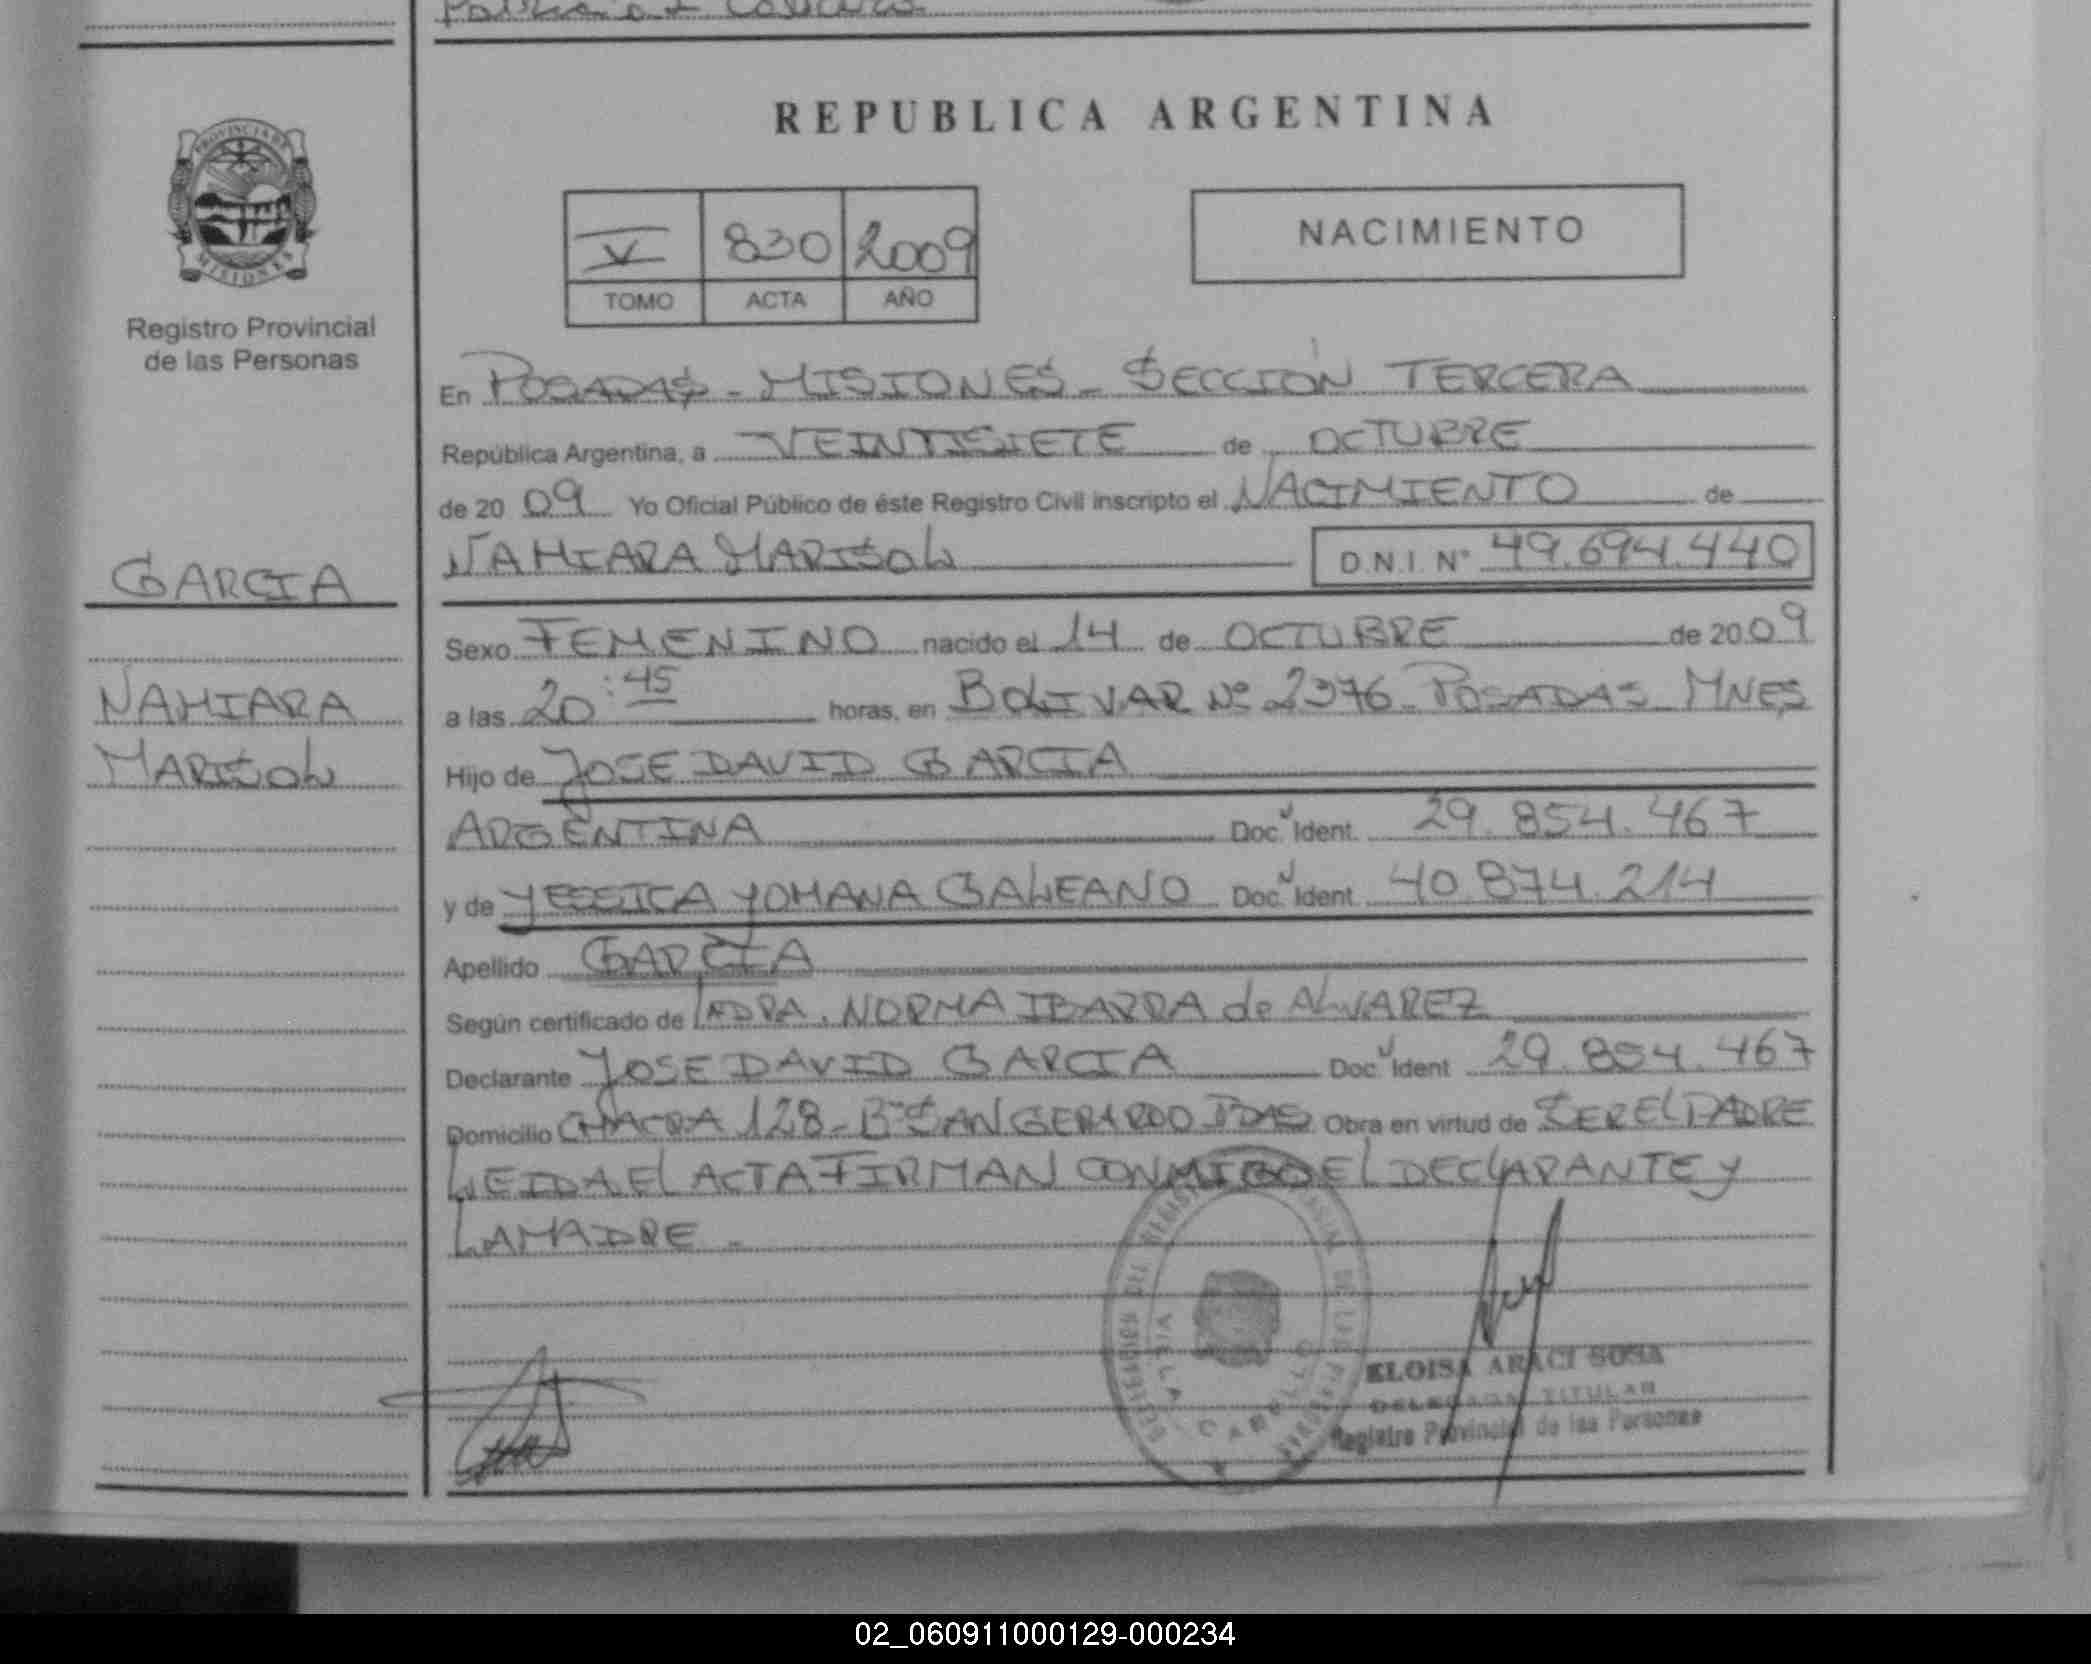 PROVINCIA DE
MISIONES
Registro Provincial
de las Personas
GARCIA
NAHIARA
MARISOL
REPUBLICA ARGENTINA
V 830 2009
TOMO ACTA AÑO
NACIMIENTO
En POSADAS - MISIONES - SECCIÓN TERCERA
República Argentina, a VEINTISIETE de OCTUBRE
de 20 09 Yo Oficial Público de éste Registro Civil inscripto el NACIMIENTO de
NAHIARA MARISOL D.N.I. Nº 49.694.440
Sexo FEMENINO nacido el 14 de OCTUBRE de 20 09
a las 20:45 horas, en BOLIVAR Nº 2376 - POSADAS MNES
Hijo de JOSE DAVID GARCIA
ARGENTINA Doc. Ident. 29.854.467
y de YESSICA YOHANA GALEANO Doc. Ident. 40.874.214
Apellido GARCIA
Según certificado de LA DRA. NORMA IBARRA de ALVAREZ
Declarante JOSE DAVID GARCIA Doc. Ident. 29.854.467
Domicilio CHACRA 128 - Bº SAN GERARDO PDAS Obra en virtud de SER EL PADRE
LEIDA EL ACTA FIRMAN CONMIGO EL DECLARANTE Y
LA MADRE -
VILLA CABELLO
ELOISA ARACI SOSA
DELEGADA TITULAR
Registro Provincial de las Personas
02_060911000129-000234